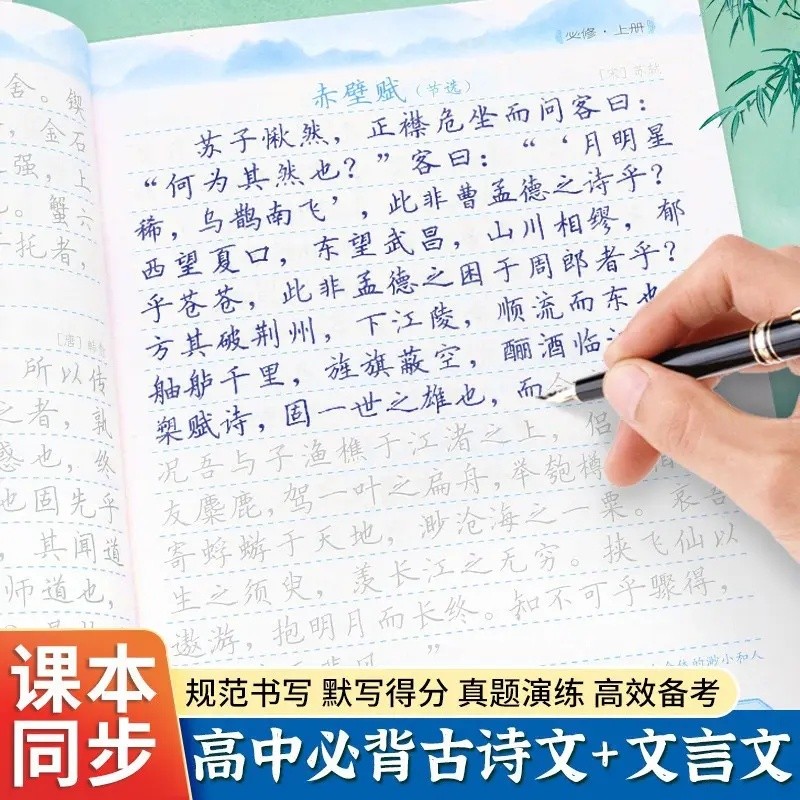 舍。锲
，金石
强，上
。蟹六
托者，
[唐]
所以传
之者，孰
惑也，终
也固先乎
，其闻道
师道也，
必修·上册
赤壁赋（节选）
[宋]苏轼
苏子愀然，正襟危坐而问客曰：
“何为其然也？”客曰：“‘月明星
稀，乌鹊南飞’，此非曹孟德之诗乎？
西望夏口，东望武昌，山川相缪，郁
乎苍苍，此非孟德之困于周郎者乎？
方其破荆州，下江陵，顺流而东也
舳舻千里，旌旗蔽空，酾酒临
槊赋诗，固一世之雄也，而
况吾与子渔樵于江渚之上，侣
友麋鹿，驾一叶之扁舟，举匏樽
寄蜉蝣于天地，渺沧海之一粟。哀吾
生之须臾，羡长江之无穷。挟飞仙以
遨游，抱明月而长终。知不可乎骤得，
”
的渺小和人
课本
同步
规范书写 默写得分 真题演练 高效备考
高中必背古诗文+文言文